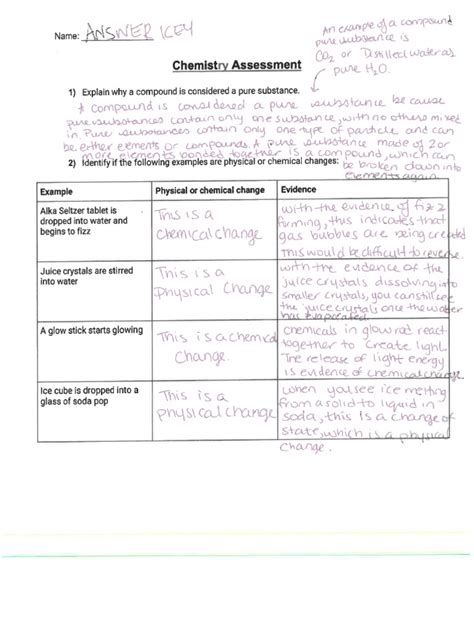 Name: ANSWER KEY
An example of a compound
pure substance is
CO2 or Distilled water as
pure H2O.
Chemistry Assessment
1) Explain why a compound is considered a pure substance.
A compound is considered a pure substance because
pure substances contain only one substance, with no others mixed
in. Pure substances contain only one type of particle and can
be either elements or compounds. A pure substance made of 2 or
more elements bonded together is a compound, which can
be broken down into
elements again.
2) Identify if the following examples are physical or chemical changes:
Example Physical or chemical change Evidence
Alka Seltzer tablet is
dropped into water and
begins to fizz
This is a
chemical change
with the evidence of fizz
forming, this indicates that
gas bubbles are being created
This would be difficult to reverse.
Juice crystals are stirred
into water
This is a
Physical Change
with the evidence of the
juice crystals dissolving into
smaller crystals, you can still see
the juice crystals once the water
has evaporated
A glow stick starts glowing
This is a chemical
Change.
chemicals in glow rod react
together to create light.
The release of light energy
is evidence of chemical change
Ice cube is dropped into a
glass of soda pop
This is a
physical change
when you see ice melting
from a solid to liquid in
soda, this is a change of
state, which is a physical
change.